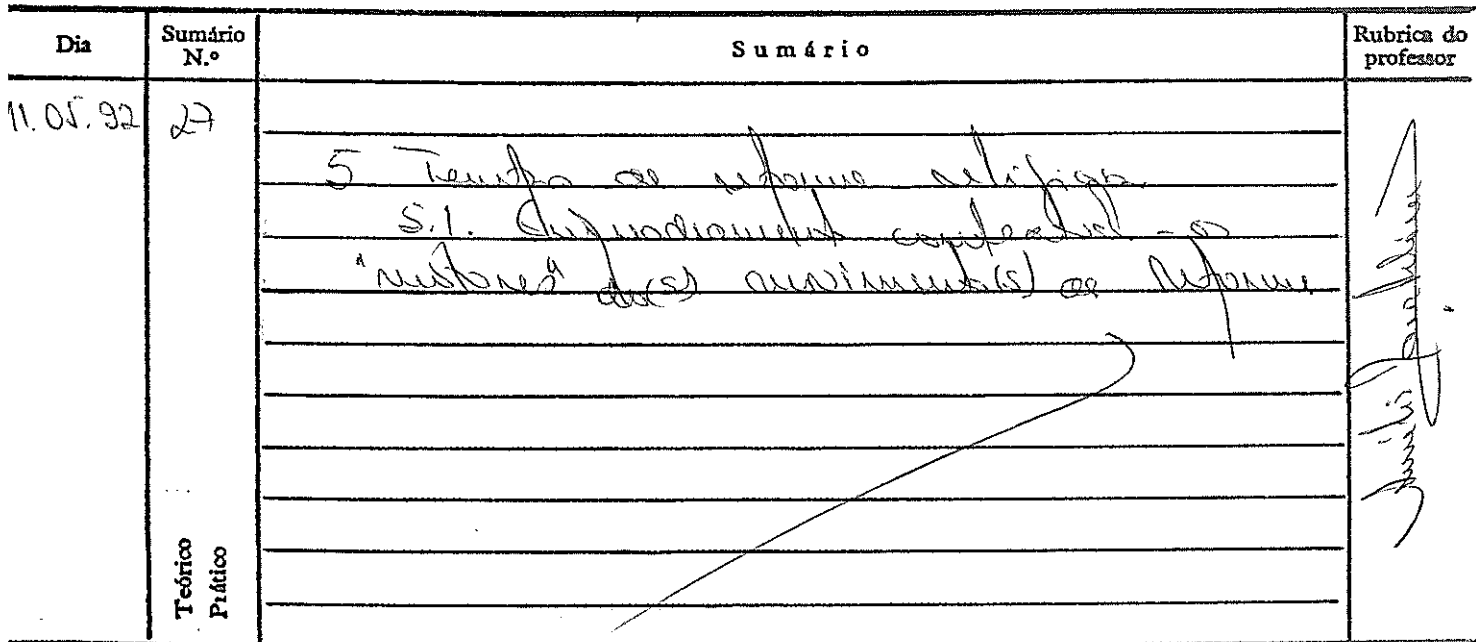 Dia
Sumário N.º
Sumário
Rubrica do professor
11.05.92
27
5 Tempos de reforma religiosa
5.1. Enquadramento conjectural - os
"motores" do(s) movimento(s) de Reforma
Teórico
Prático